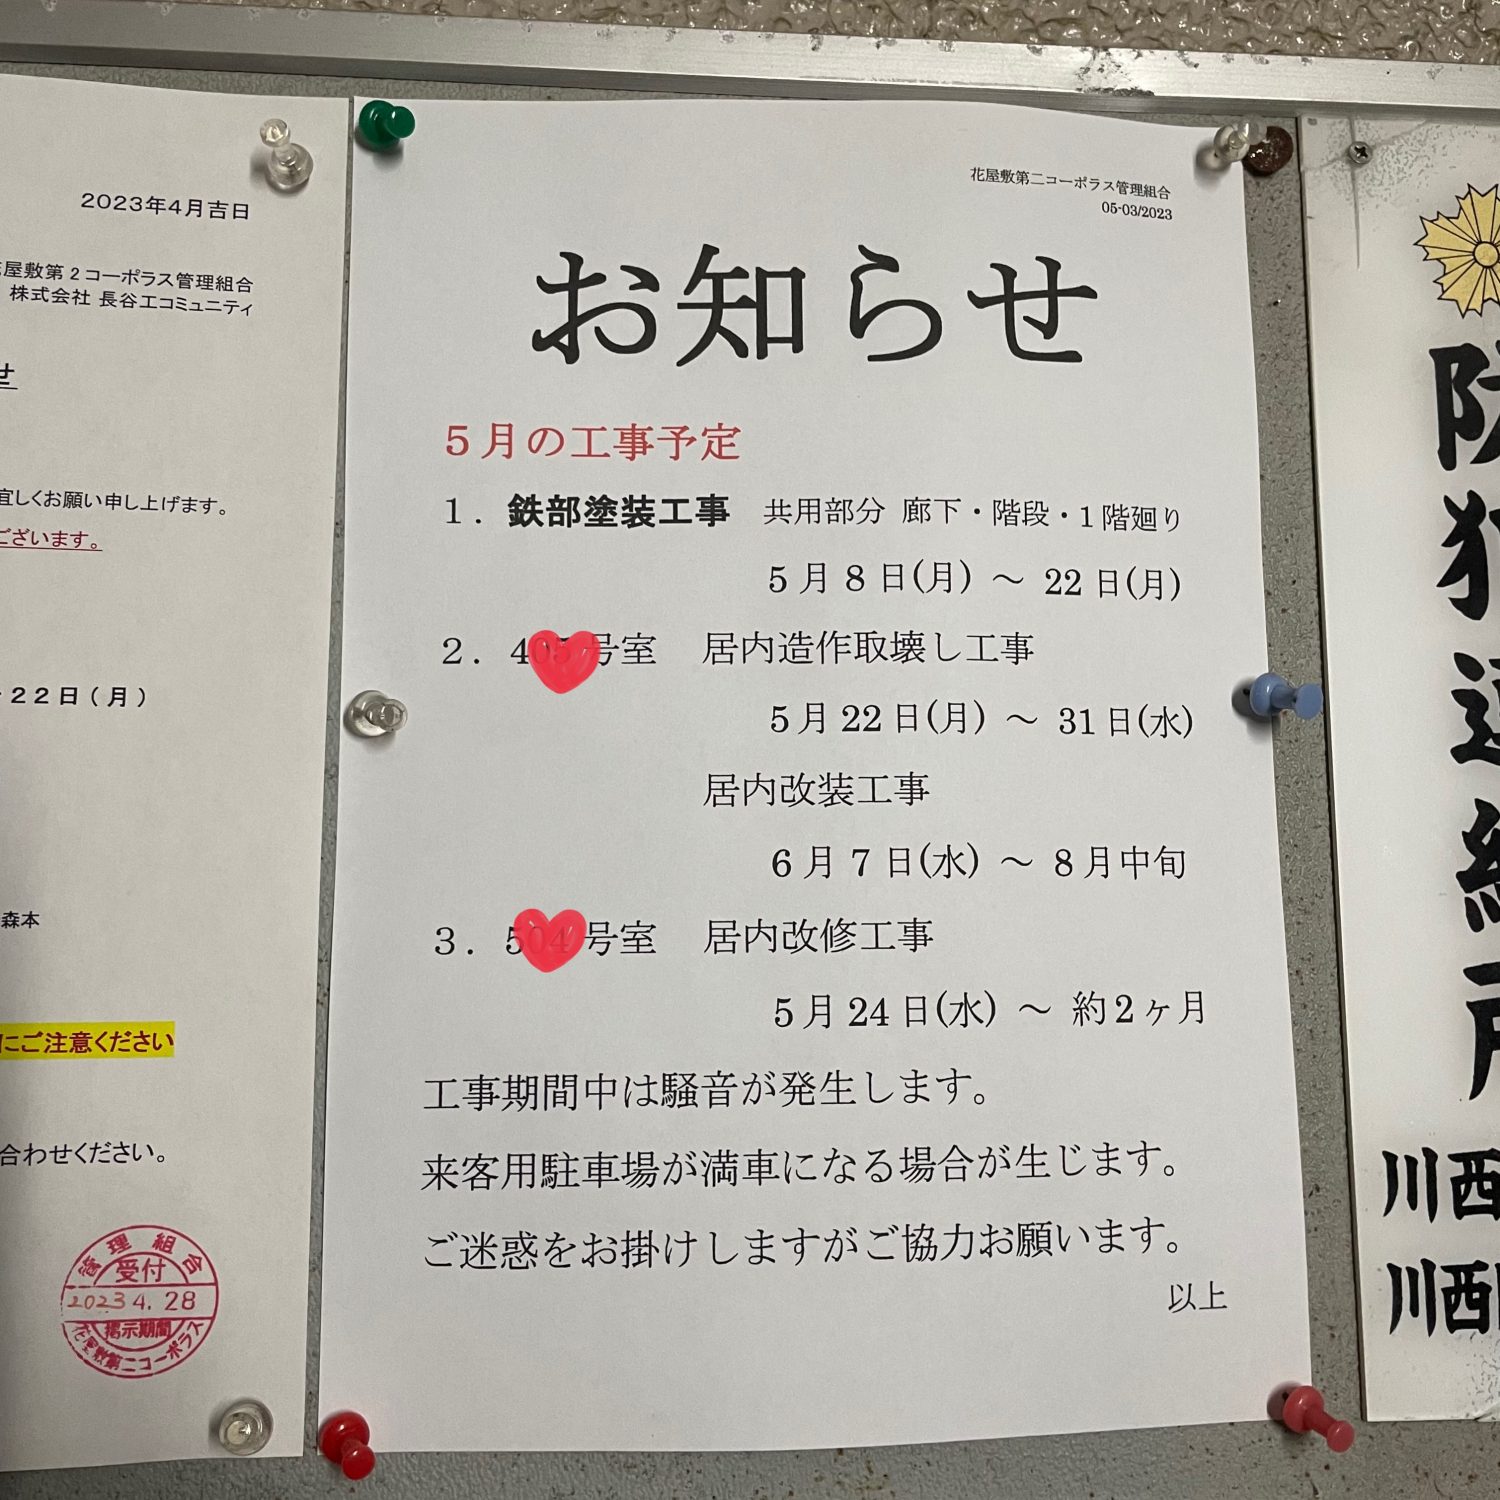 2023年4月吉日
屋敷第2コーポラス管理組合
株式会社 長谷工コミュニティ
せ
宜しくお願い申し上げます。
ございます。
22日(月)
森本
にご注意ください
合わせください。
管理組合
受付
2023 4. 28
掲示期間
花屋敷第二コーポラス
花屋敷第二コーポラス管理組合
05-03/2023
お知らせ
5月の工事予定
1. 鉄部塗装工事 共用部分 廊下・階段・1階廻り
5月8日(月) ～ 22日(月)
2. 4 号室 居内造作取壊し工事
5月22日(月) ～ 31日(水)
居内改装工事
6月7日(水) ～ 8月中旬
3. 5 号室 居内改修工事
5月24日(水) ～ 約2ヶ月
工事期間中は騒音が発生します。
来客用駐車場が満車になる場合が生じます。
ご迷惑をお掛けしますがご協力お願います。
以上
防犯連絡所
川西
川西